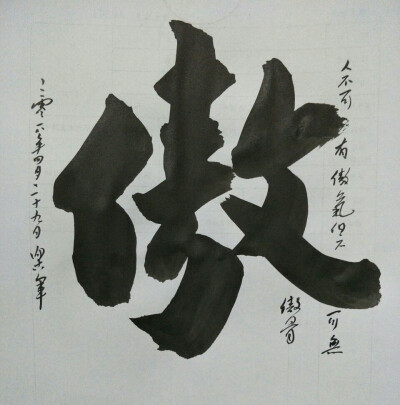 人不可有傲氣但不可無
傲骨
傲
二零一年四月二十九日